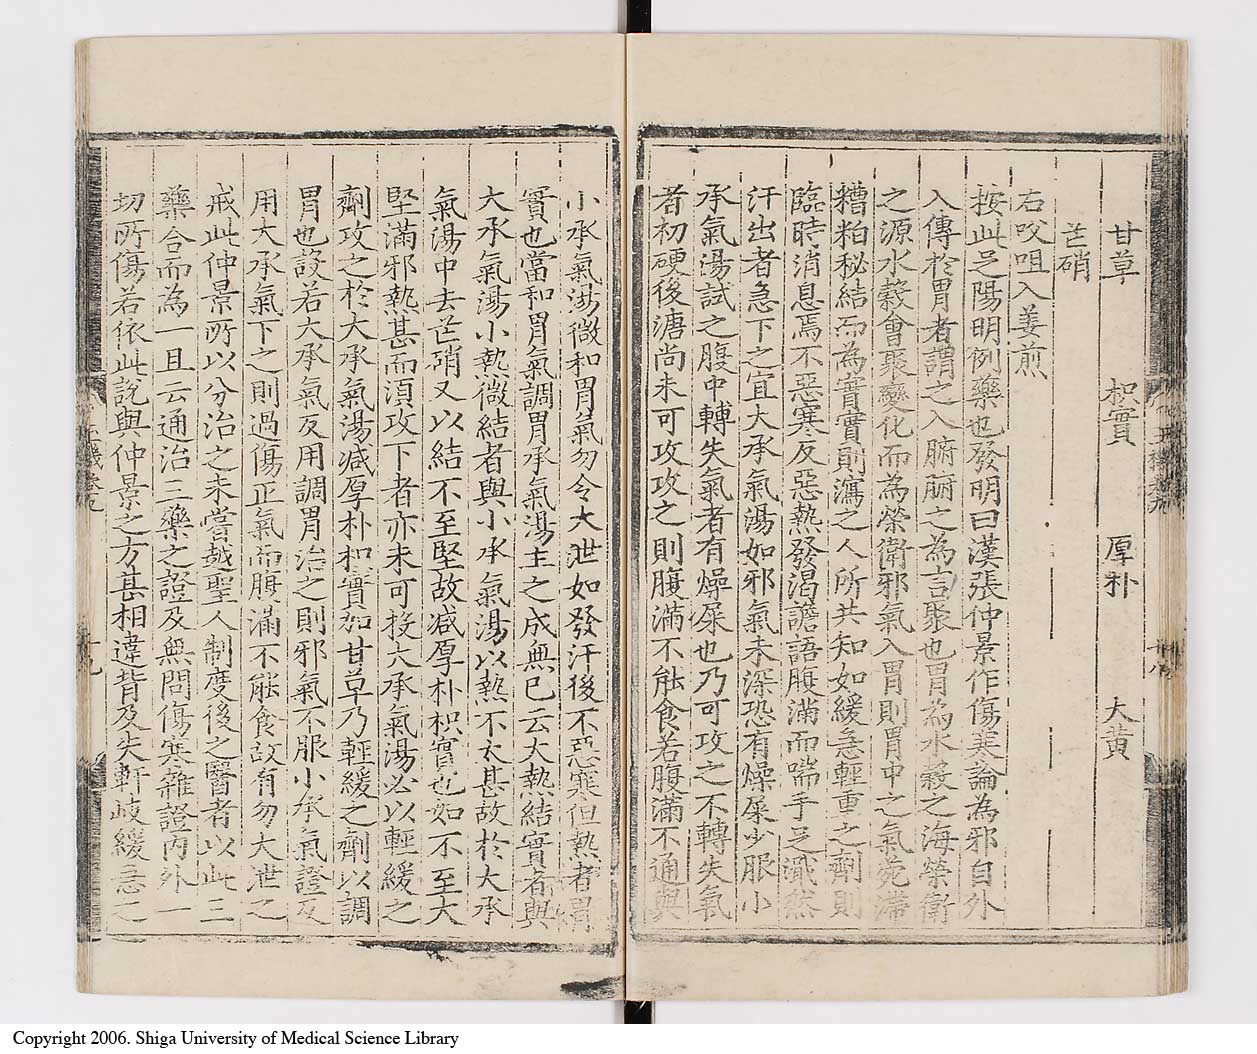 甘草 枳實 厚朴 大黃
芒硝
右㕮咀入姜煎
按此足陽明例藥也發明曰漢張仲景作傷寒論為邪自外
入傳於胃者謂之入腑腑之為言聚也胃為水穀之海榮衛
之源水穀會聚變化而為榮衛邪氣入胃則胃中之氣菀滯
糟粕秘結而為實實則瀉之人所共知如緩急輕重之劑則
臨時消息焉不惡寒反惡熱發渴譫語腹滿而喘手足濈然
汗出者急下之宜大承氣湯如邪氣未深恐有燥屎少服小
承氣湯試之腹中轉失氣者有燥屎也乃可攻之不轉失氣
者初硬後溏尚未可攻攻之則腹滿不能食若腹滿不通與
小承氣湯微和胃氣勿令大泄如發汗後不惡寒但熱者胃
實也當和胃氣調胃承氣湯主之成無已云大熱結實者與
大承氣湯小熱微結者與小承氣湯以熱不太甚故於大承
氣湯中去芒硝又以結不至堅故减厚朴枳實也如不至大
堅滿邪熱甚而湏攻下者亦未可投大承氣湯必以輕緩之
劑攻之於大承氣湯减厚朴枳實加甘草乃輕緩之劑以調
胃也設若大承氣反用調胃治之則邪氣不服小承氣證反
用大承氣下之則過傷正氣而腹滿不能食故有勿大泄之
戒此仲景所以分治之未嘗越聖人制度後之醫者以此三
藥合而為一且云通治三藥之證及無問傷寒雜證內外一
切所傷若依此說與仲景之方甚相違背及失軒岐緩急之
Copyright 2006. Shiga University of Medical Science Library